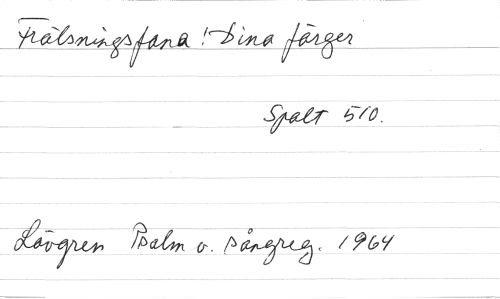 Frälsningsfana! Dina färger
Spalt 510.
Lövgren Psalm o. sångreg. 1964